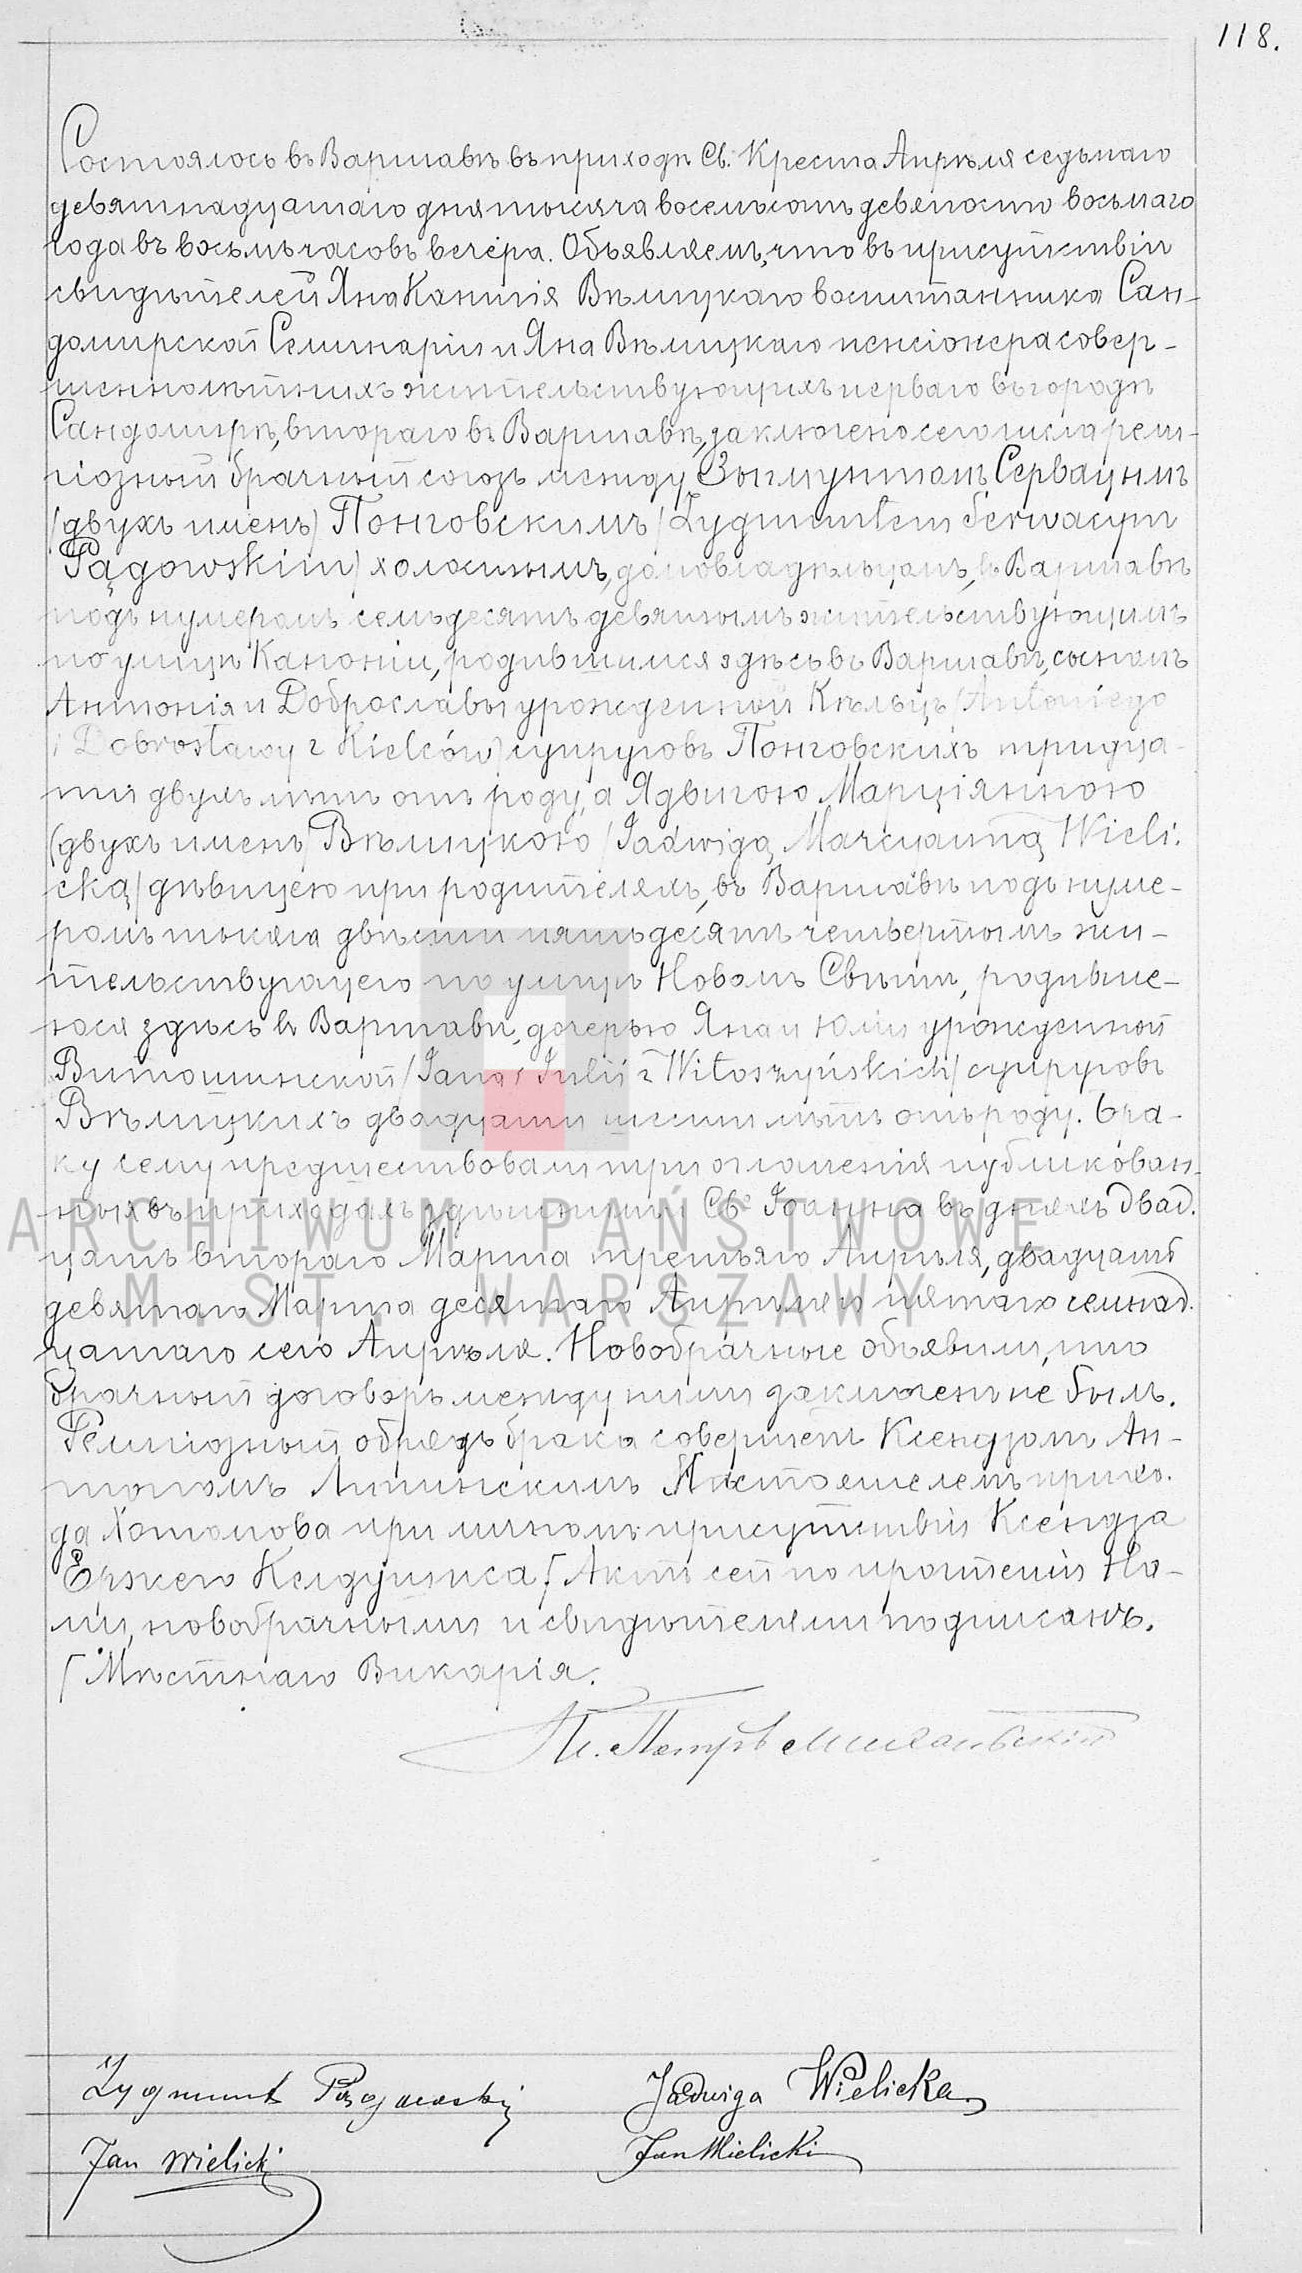 118.
Состоялось въ Варшавѣ въ приходѣ Св. Креста Апрѣля седьмаго
девятнадцатаго дня тысяча восемьсотъ девяносто восьмаго
года въ восемь часовъ вечера. Объявляемъ, что въ присутствіи
свидѣтелей Яна Кантія Вѣлицкаго воспитанника Сан-
домирской Семинаріи и Яна Вѣлицкаго пенсіонера совер-
шеннолѣтнихъ жительствующихъ перваго въ городѣ
Сандомирѣ, втораго въ Варшавѣ, заключено сего числа рели-
гіозный брачный союзъ между Зыгмунтомъ Сервацымъ
/двухъ именъ/ Понговскимъ /Zygmuntem Serwacym
Pągowskim/ холостымъ, домовладѣльцомъ, въ Варшавѣ
подъ нумеромъ семьдесятъ девятымъ жительствующимъ
по улицѣ Каноніи, родившимся здѣсь въ Варшавѣ, сыномъ
Антонія и Доброславы урожденной Кѣльцъ /Antoniego
i Dobrosławy z Kielców/ супруговъ Понговскихъ тридца-
ти двухъ лѣтъ отъ роду, а Ядвигою Марціянною
(двухъ именъ/ Вѣлицкою /Jadwigą Marcyanną Wieli.
cką/ дѣвицею при родителяхъ, въ Варшавѣ подъ нуме-
ромъ тысяча двѣсти пятьдесятъ четвертымъ жи-
тельствующею по улицѣ Новомъ Свѣтѣ, родивше-
юся здѣсь въ Варшавѣ, дочерью Яна и Юліи урожденной
Витошинской /Jana i Julii z Witoszyńskich/ супруговъ
Вѣлицкихъ двадцати шести лѣтъ отъ роду. Бра-
ку сему предшествовали три оглашенія публикован-
ныя въ приходахъ здѣшнимъ и Св. Іоанна въ дняхъ двад.
цать втораго Марта третьяго Апрѣля, двадцать
девятаго Марта десятаго Апрѣля и пятаго семнад.
цатаго сего Апрѣля. Новобрачные объявили, что
брачный договоръ между ними заключенъ не былъ.
Религіозный обрядъ брака совершенъ Ксендзомъ Ан-
тономъ Липинскимъ Настоятелемъ прихо.
да Хотомова при личномъ присутствіи Ксендза
Ержего Келдушиса ſ Актъ сей по прочтеніи На-
ми, новобрачными и свидѣтелями подписанъ.
ſ Мѣстнаго Викарія.
Zygmunt Pągowski Jadwiga Wielicka
Jan Wielicki Jan Wielicki
ARCHIWUM PAŃSTWOWE
M.ST. WARSZAWY